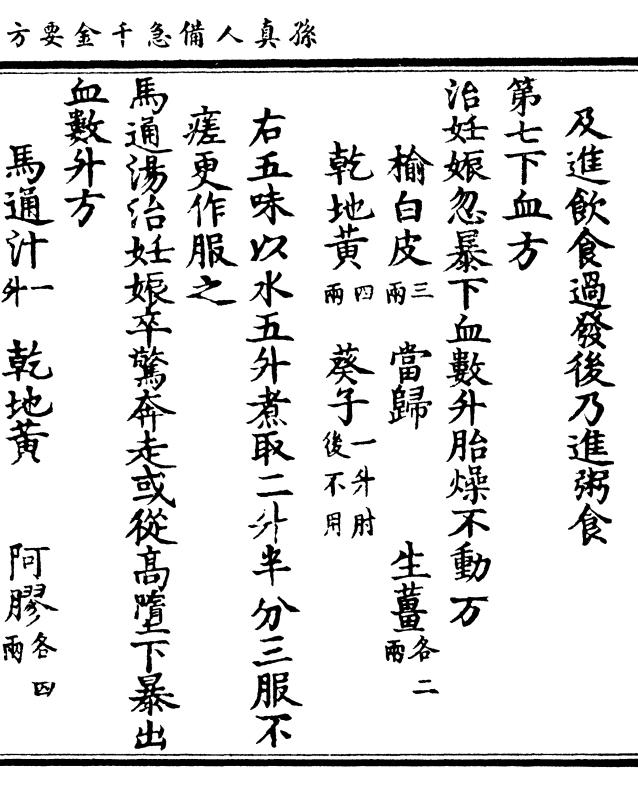 孫真人備急千金要方
及進飲食過發後乃進粥食
第七下血方
治妊娠忽暴下血數升胎燥不動方
榆白皮三兩 當歸 生薑各二兩
乾地黃四兩 葵子一升肘後不用
右五味以水五升煮取二升半分三服不
瘥更作服之
馬通湯治妊娠卒驚奔走或從高墮下暴出
血數升方
馬通汁一升 乾地黃 阿膠各四兩